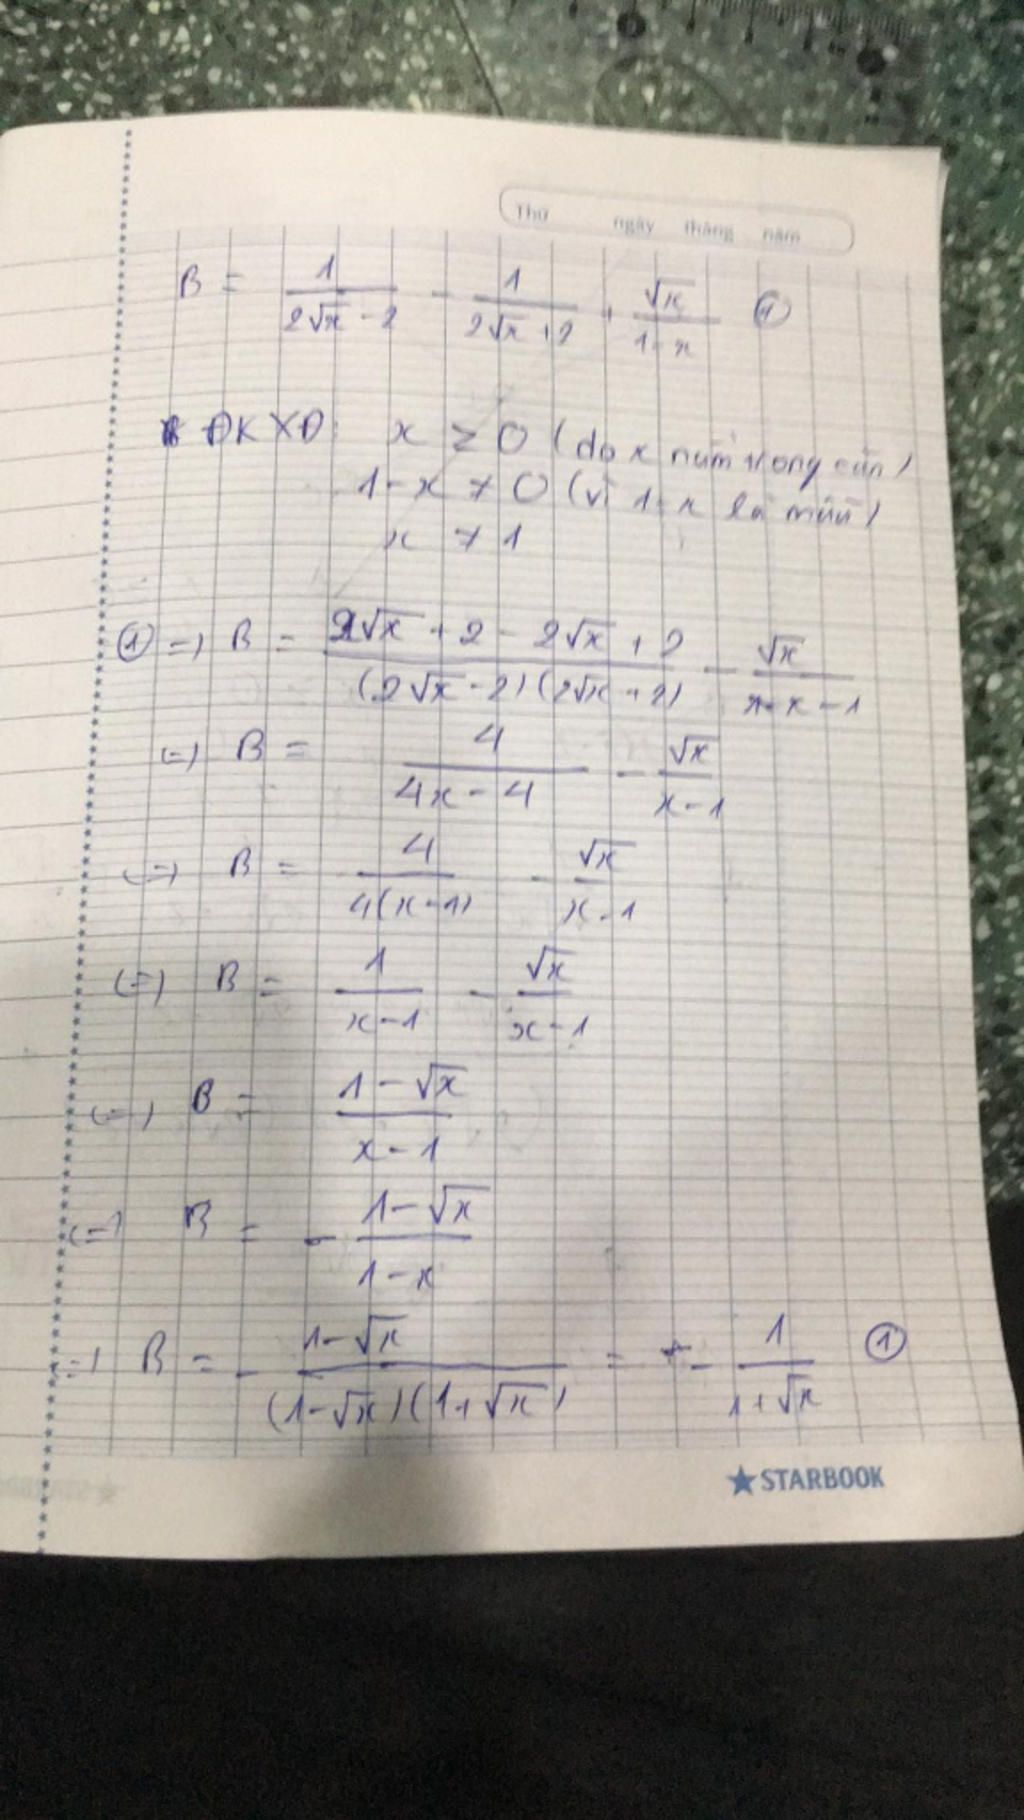 Thứ ngày tháng năm
B = 1/(2√x - 2) - 1/(2√x + 2) + √x/(1-x) ①
ĐKXĐ: x ≥ 0 (do x nằm trong căn)
1-x ≠ 0 (vì 1-x là mẫu)
x ≠ 1
① => B = (2√x + 2 - 2√x + 2)/((2√x - 2)(2√x + 2)) - √x/(x - 1)
(=) B = 4/(4x - 4) - √x/(x-1)
(=) B = 4/(4(x-1)) - √x/(x-1)
(=) B = 1/(x-1) - √x/(x-1)
(=) B = (1-√x)/(x-1)
(=) B = - (1-√x)/(1-x)
(=) B = - (1-√x)/((1-√x)(1+√x)) = - 1/(1+√x) ①
STARBOOK